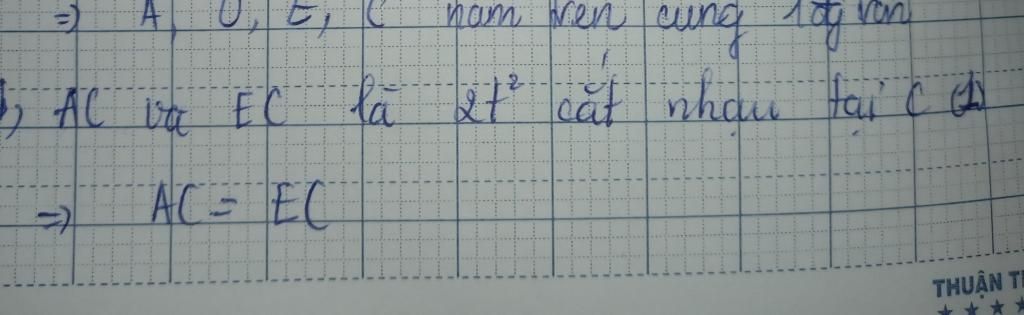 => A, O, E, C nằm trên cùng 1 đg tròn
b, AC và EC là 2t² cắt nhau tại C
=> AC = EC
THUẬN T